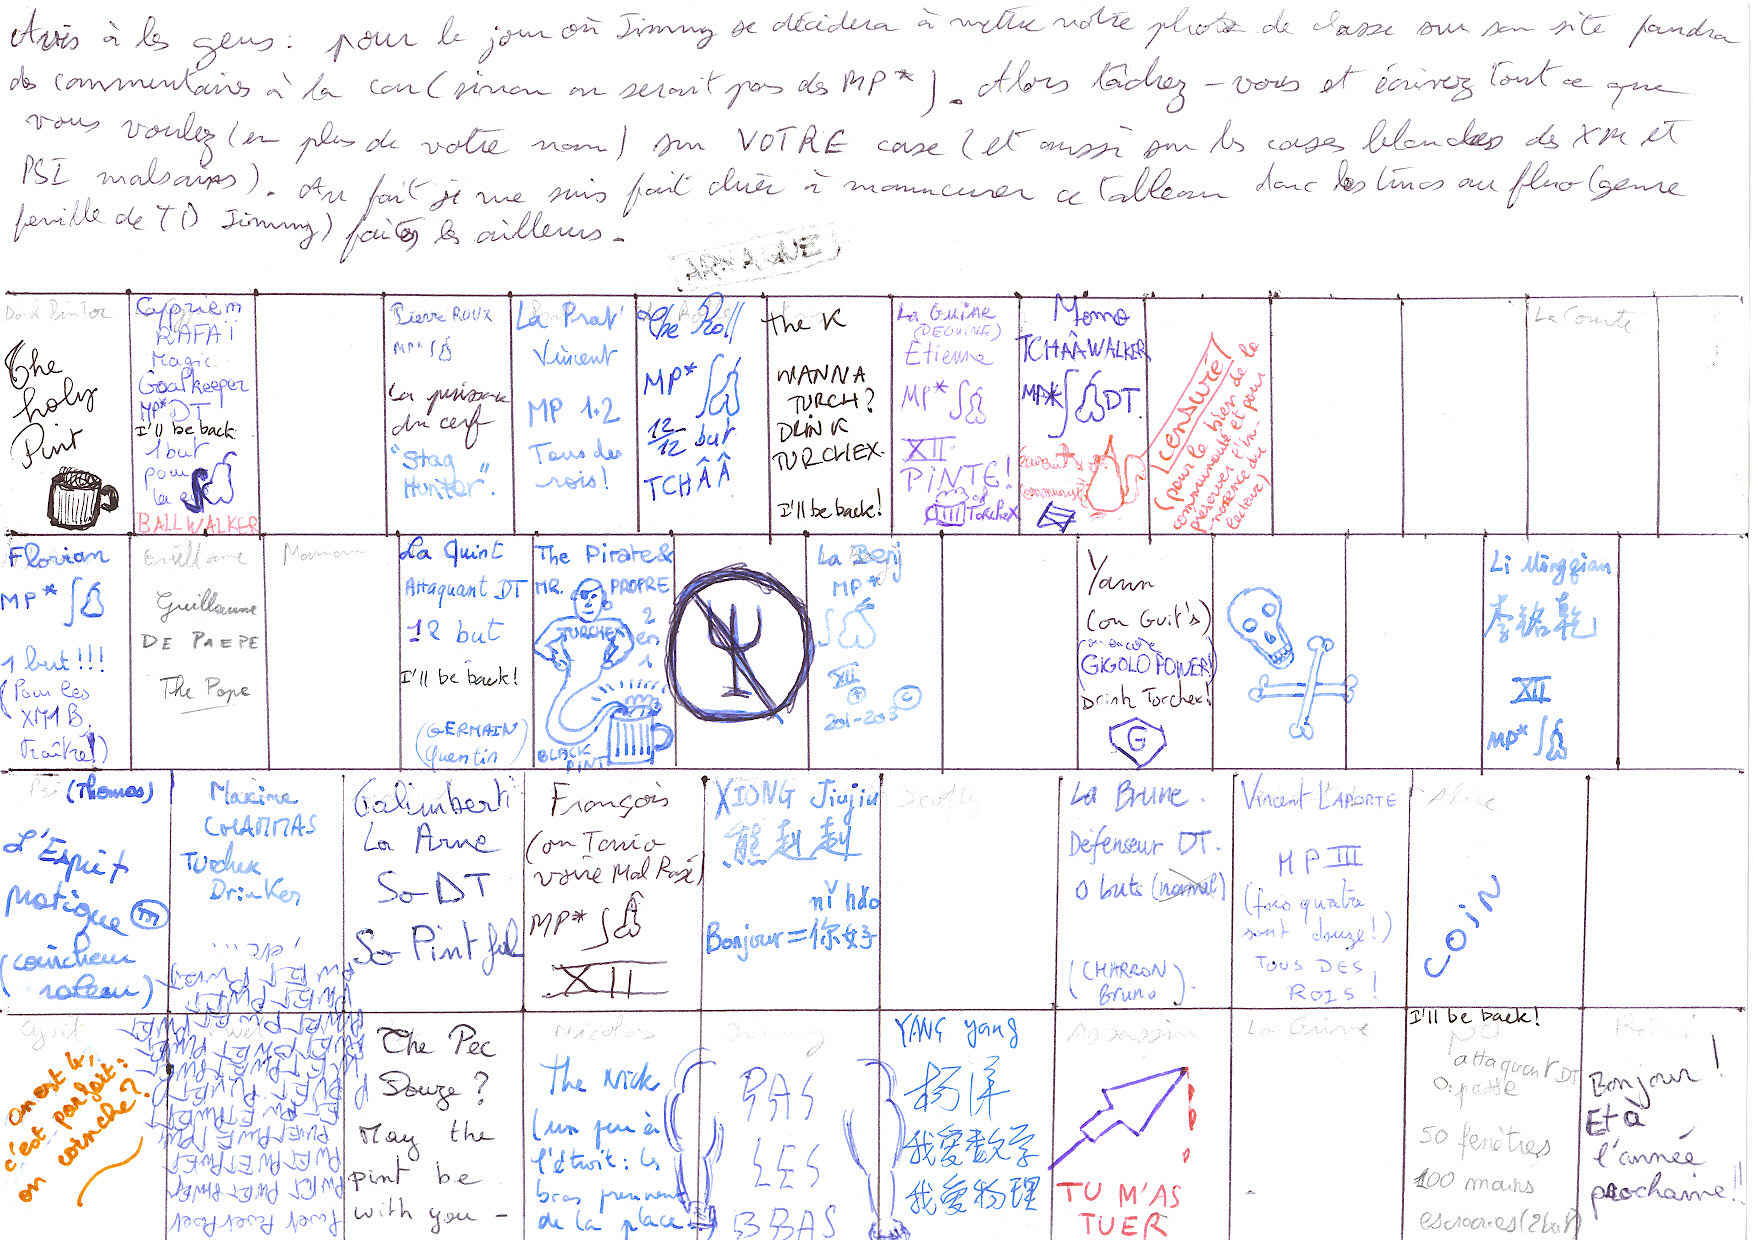 Avis à les gens : pour le jour où Jimmy se décidera à mettre notre photo de classe sur son site faudra
des commentaires à la con (sinon on serait pas des MP*). Alors lâchez-vous et écrivez tout ce que
vous voulez (en plus de votre nom) sur VOTRE case (et aussi sur les cases blanches des XM et
PSI malsains). Au fait je me suis fait chier à manucurer ce tableau donc les trucs au fluo (genre
feuille de TD Jimmy) faites les ailleurs.
The
holy
Pint
Cyprien
RAFAÏ
Magic
Goalkeeper
MP* DT
I'll be back
1 but
pour
la
BALLWALKER
Pierre ROUX
MP*
La puissance
du cerf
"Stag
Hunter".
La Prat'
Vincent
MP 1*2
Tous des
rois!
The Roll
MP*
12/12 but
TCHÂÂ
The K
WANNA
TURCH?
DRINK
TURCHEX.
I'll be back!
La Guine
(DEGUINE)
Etienne
MP*
XII
PINTE!
of
TorcheX
Momo
TCHÂÂWALKER
MP* DT
censuré!
(pour le bien de la
communauté et pour
préserver l'in-
nocence du
lecteur)
La Comte
Florian
MP*
1 but!!!
(Pour les
XM1B.
Traître!)
Guillaume
DE PAEPE
The Pope
La Quint
Attaquant DT
12 but
I'll be back!
(GERMAIN)
Quentin
The Pirate &
MR. PROPRE
2
en
1
TURCHEX
BLACK
PINT
La Benj
MP*
XII
©
Yann
(ou Guit's)
ou encore
GIGOLO POWER!
Drink Torchex!
G
Li Mingqian
李铭乾
XII
MP*
(Thomas)
L'Esprit
Motique
(coincheur
Maxime
CHAMMAS
Turchex
Drinker
, etc...
Galimberti
La Arne
So DT
So Pintful
François
(ou Tonio
voire Mal Rasé)
MP*
XII
XIONG Jiujiu
熊赳赳
nǐ hǎo
Bonjour = 你好
La Brune.
Défenseur DT.
0 buts (normal)
(CHARRON)
Bruno
Vincent LAPORTE
MP III
(fois quatre
sont douze!)
TOUS DES
ROIS!
COIN
on est 4,
c'est parfait :
on coinche?
PWET PWET PWET
The Pec
Douze?
May the
pint be
with you -
The Nick
(un peu à
l'étroit : les
bras prennent
de la place)
PAS
LES
BBAS
YANG Yang
杨洋
我爱数学
我爱物理
Assassin
TU M'AS
TUER
La Guine
I'll be back!
attaquant DT
0 passe
50 fenêtres
100 mains
Bonjour!
Et à
l'année
prochaine!!